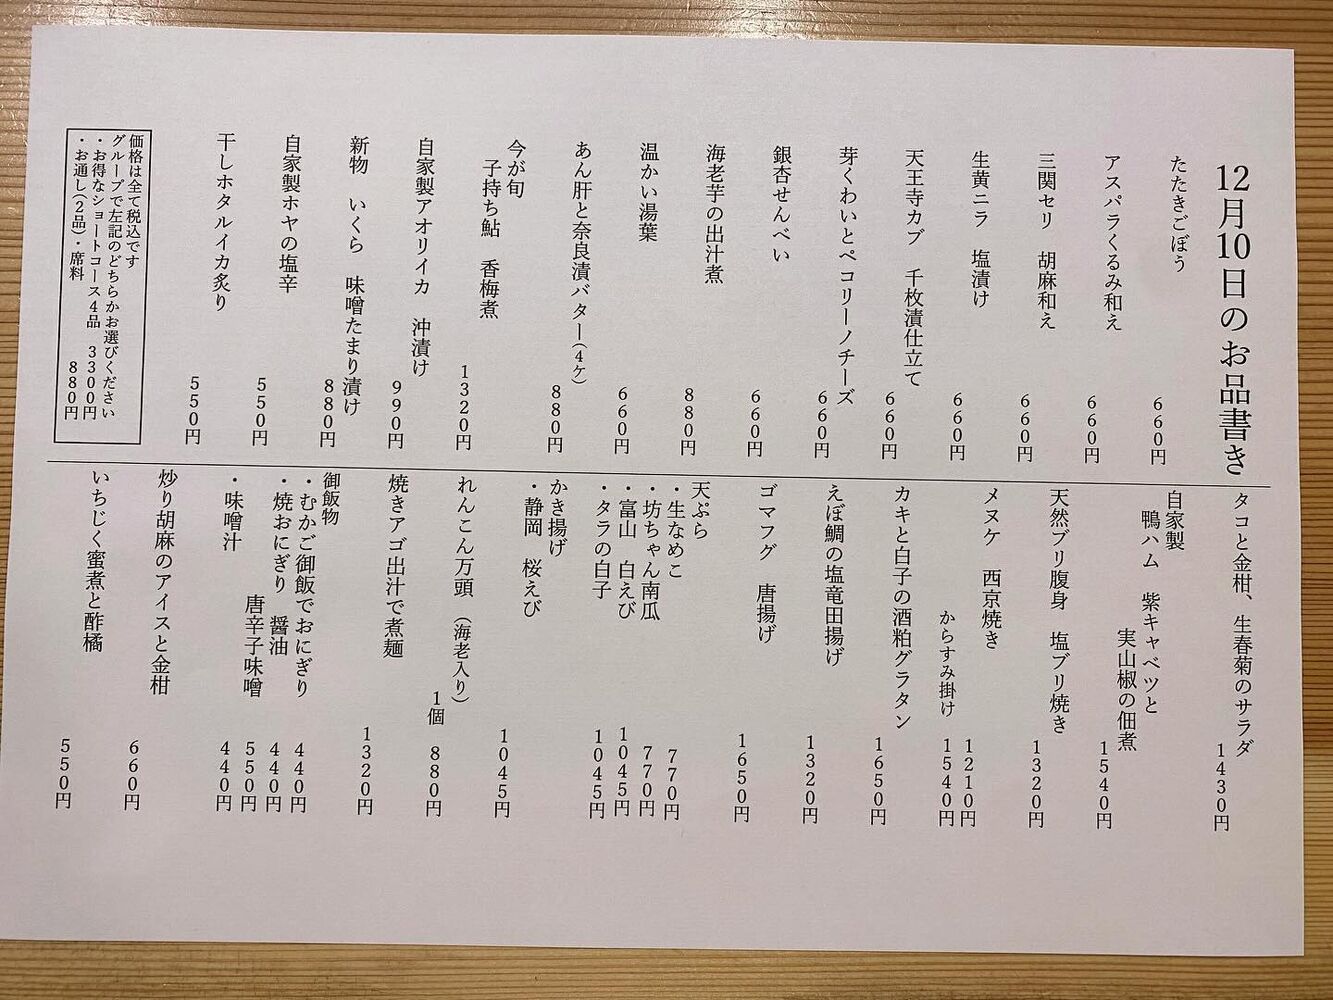 12月10日のお品書き
たたきごぼう
660円
アスパラくるみ和え
660円
三関セリ 胡麻和え
660円
生黄ニラ 塩漬け
660円
天王寺カブ 千枚漬仕立て
660円
芽くわいとペコリーノチーズ
660円
銀杏せんべい
660円
海老芋の出汁煮
880円
温かい湯葉
660円
あん肝と奈良漬バター(4ヶ)
880円
今が旬
子持ち鮎 香梅煮
1320円
自家製アオリイカ 沖漬け
990円
新物 いくら 味噌たまり漬け
880円
自家製ホヤの塩辛
550円
干しホタルイカ炙り
550円
価格は全て税込です
グループで左記のどちらかお選びください
・お得なショートコース4品 3300円
・お通し(2品)・席料 880円
タコと金柑、生春菊のサラダ
1430円
自家製
鴨ハム 紫キャベツと
実山椒の佃煮
1540円
天然ブリ腹身 塩ブリ焼き
1320円
メヌケ 西京焼き
1210円
からすみ掛け 1540円
カキと白子の酒粕グラタン
1650円
えぼ鯛の塩竜田揚げ
1320円
ゴマフグ 唐揚げ
1650円
天ぷら
・生なめこ 770円
・坊ちゃん南瓜 770円
・富山 白えび 1045円
・タラの白子 1045円
かき揚げ
・静岡 桜えび
1045円
れんこん万頭 (海老入り)
1個 880円
焼きアゴ出汁で煮麺
1320円
御飯物
・むかご御飯でおにぎり 440円
・焼おにぎり 醤油 440円
唐辛子味噌 550円
・味噌汁 440円
炒り胡麻のアイスと金柑
660円
いちじく蜜煮と酢橘
550円